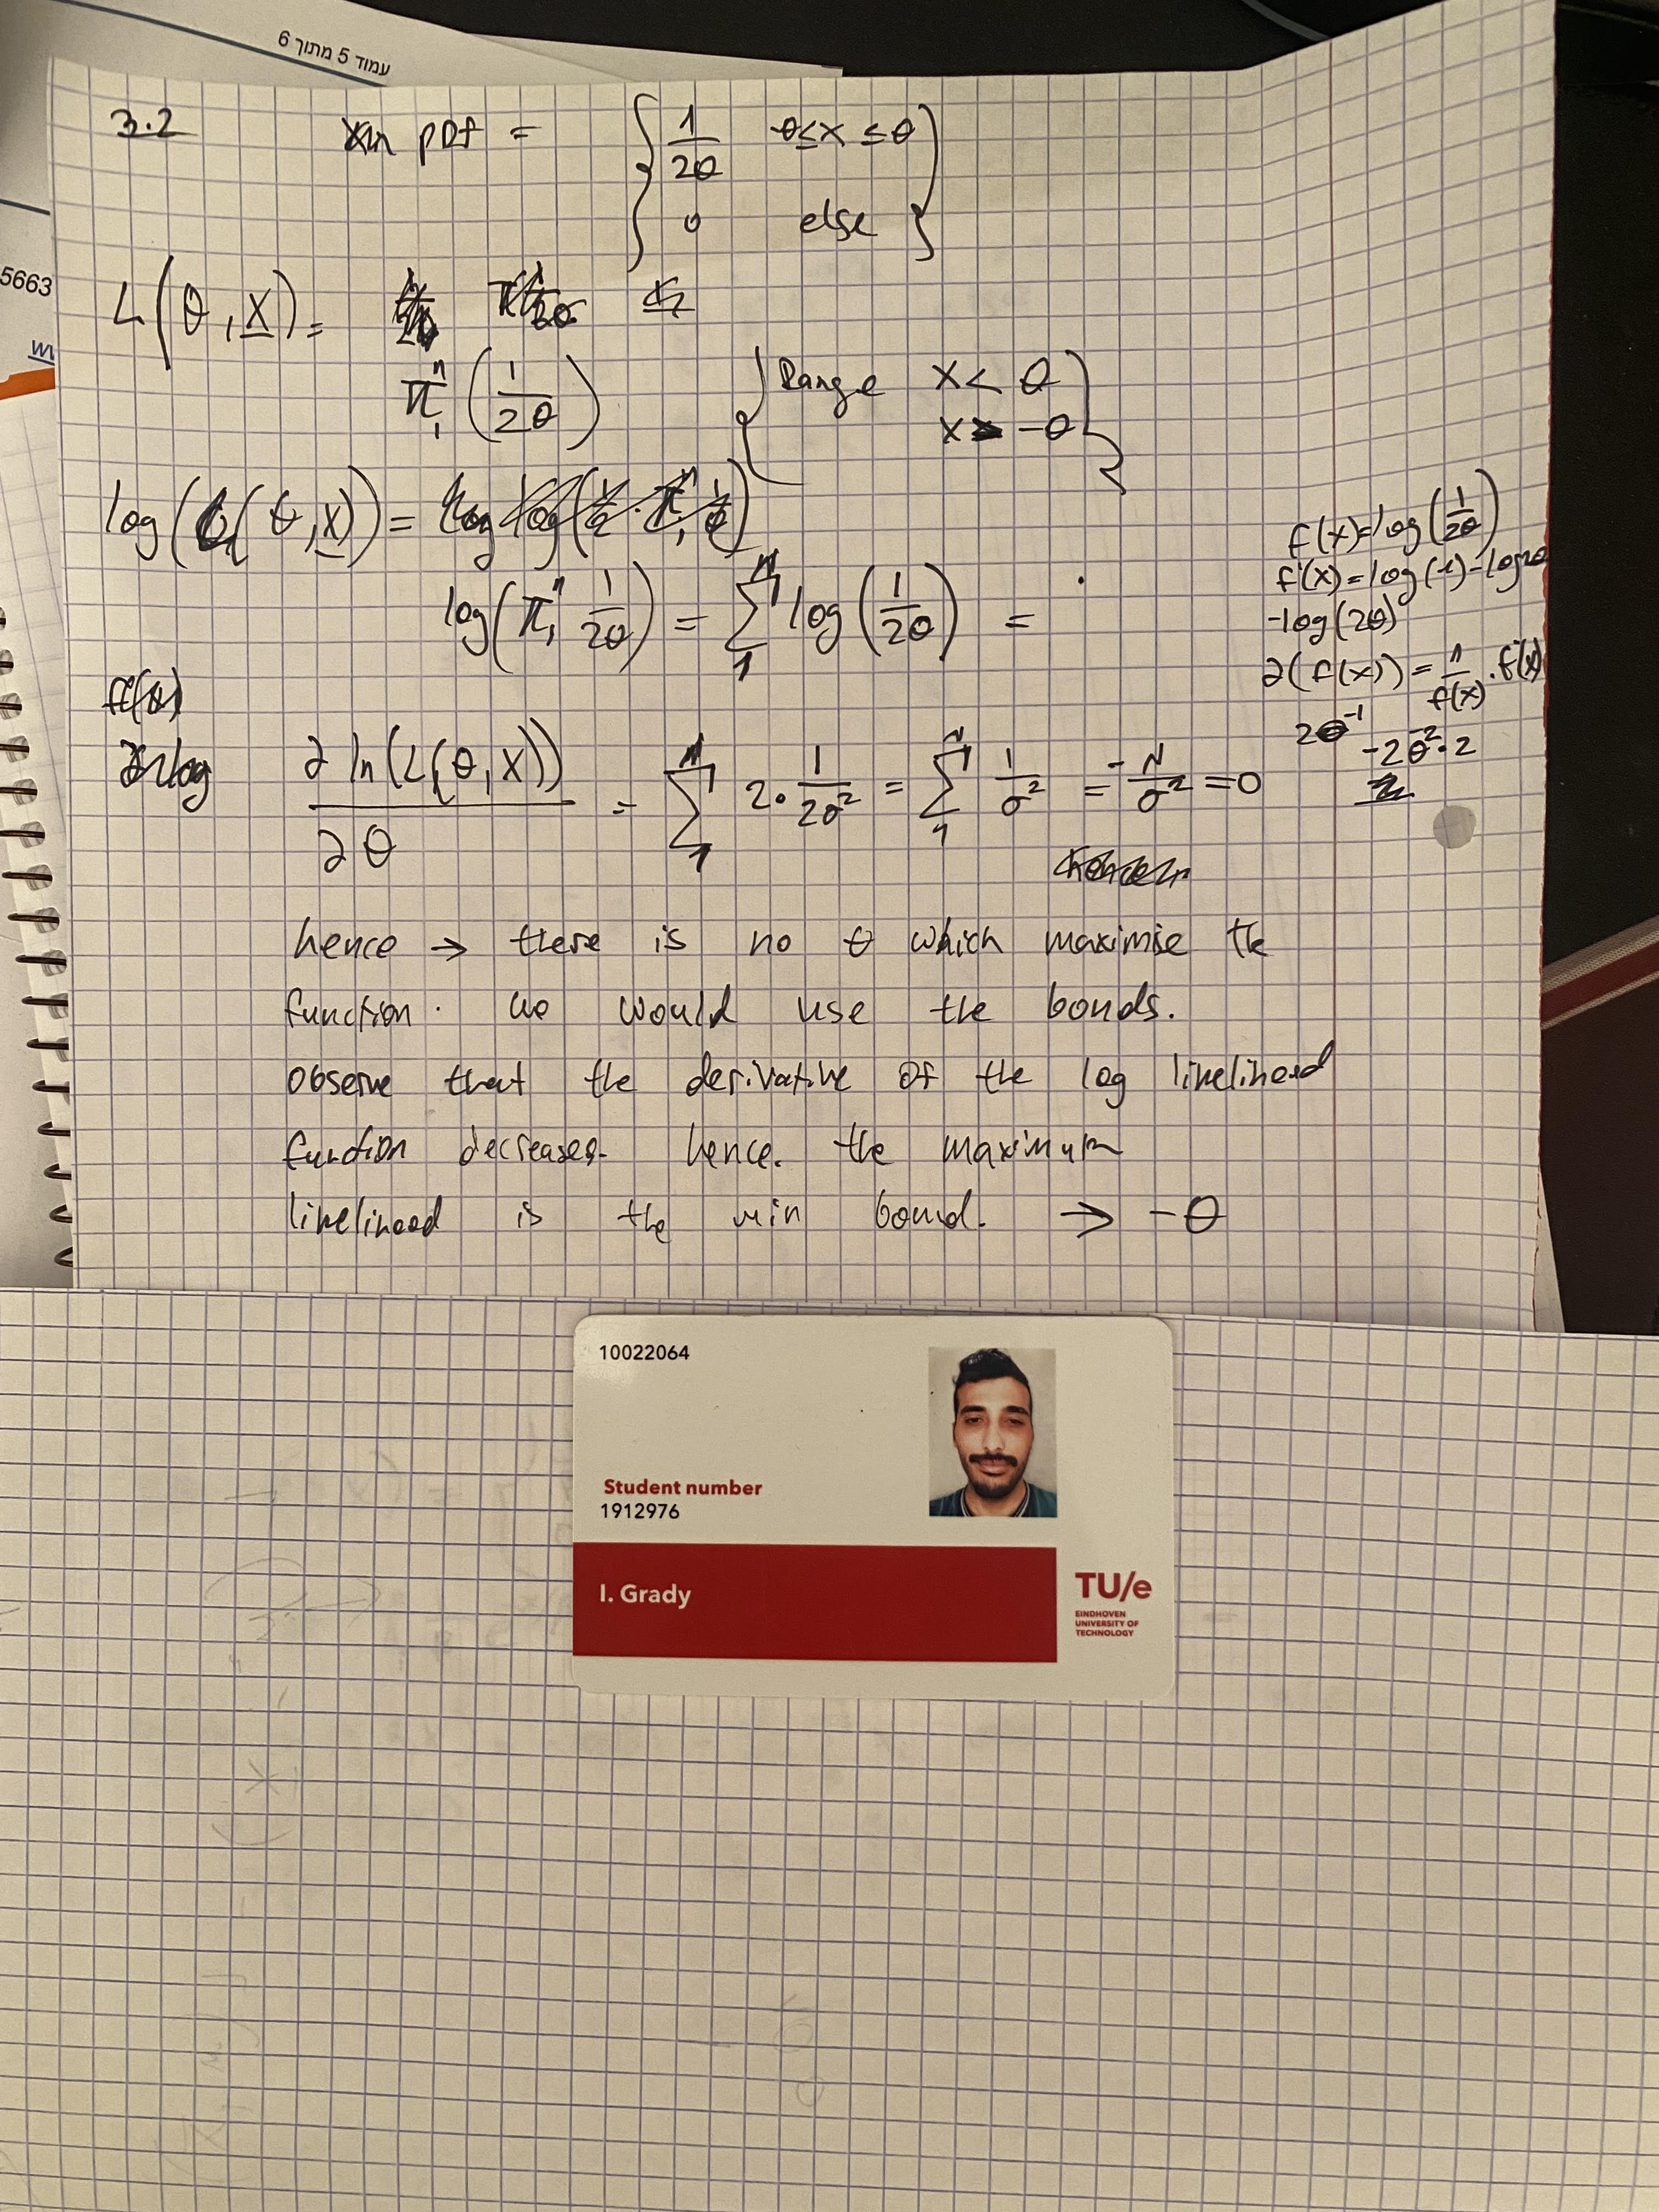 עמוד 5 מתוך 6
5663
3.2 pDf = { 1/2θ -θ≤x ≤θ
0 else }
L(θ,X)=
π₁ⁿ (1/2θ) { Range x< θ
x> -θ }
log(L(θ,X)) =
log(π₁ⁿ 1/2θ) = Σ₁ⁿ log(1/2θ) =
f(x)=log(1/2θ)
f(x)=log(1)-log2θ
-log(2θ)
∂(f(x)) = 1/f(x) · f'(x)
2θ⁻¹ -2θ⁻²·2
∂ ln(L(θ,X)) / ∂θ = Σ₁ⁿ 2· 1/2θ² = Σ₁ᴺ 1/θ² = -N/θ² =0
hence → there is no θ which maximise the
function. we would use the bonds.
observe that the derivative of the log likelihood
function decreases. hence. the maximum
likelihood is the min bound. → -θ
10022064
Student number
1912976
I. Grady
TU/e
EINDHOVEN
UNIVERSITY OF
TECHNOLOGY